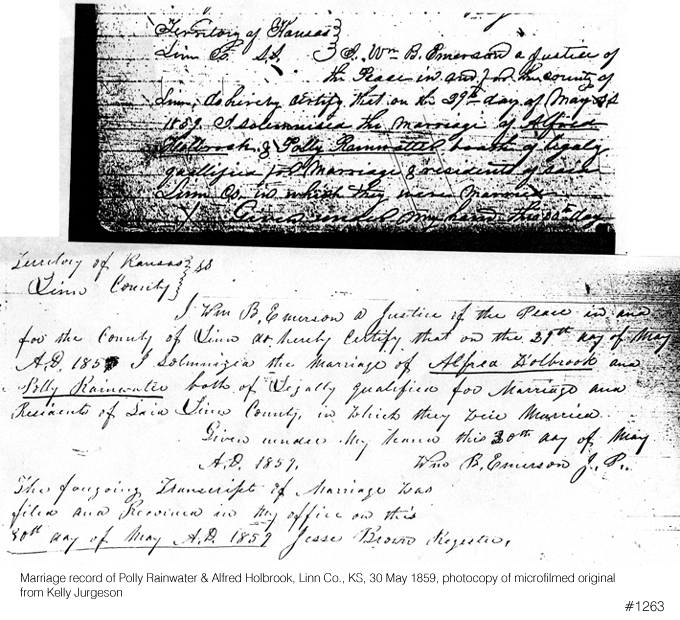 Territory of Kansas }
Linn Co. S.S. } I, Wm B. Emerson a Justice of
the Peace in and for the county of
Linn, do hereby certify that on the 29th day of May A.D.
1859. I solemnised the Marriage of Alfred
Holbrook & Polly Rainwater both of legally
qualified for Marriage & residents of said
Linn Co. in which they were Married
Given under my hand this 30th day
Territory of Kansas } SS
Linn County }
I Wm B. Emerson a Justice of the Peace in and
for the County of Linn do hereby Certify that on the 29th day of May
A.D. 1859 I Solemnized the Marriage of Alfred Holbrook and
Polly Rainwater both of Legally qualified for Marriage and
Residents of Said Linn County, in which they were Married.
Given under My hand this 30th day of May
A.D. 1859. Wm B. Emerson J. P.
The forgoing Transcript of Marriage was
filed and Received in My office on this
30th day of May A.D. 1859 Jesse Brown Register.
Marriage record of Polly Rainwater & Alfred Holbrook, Linn Co., KS, 30 May 1859, photocopy of microfilmed original
from Kelly Jurgeson
#1263